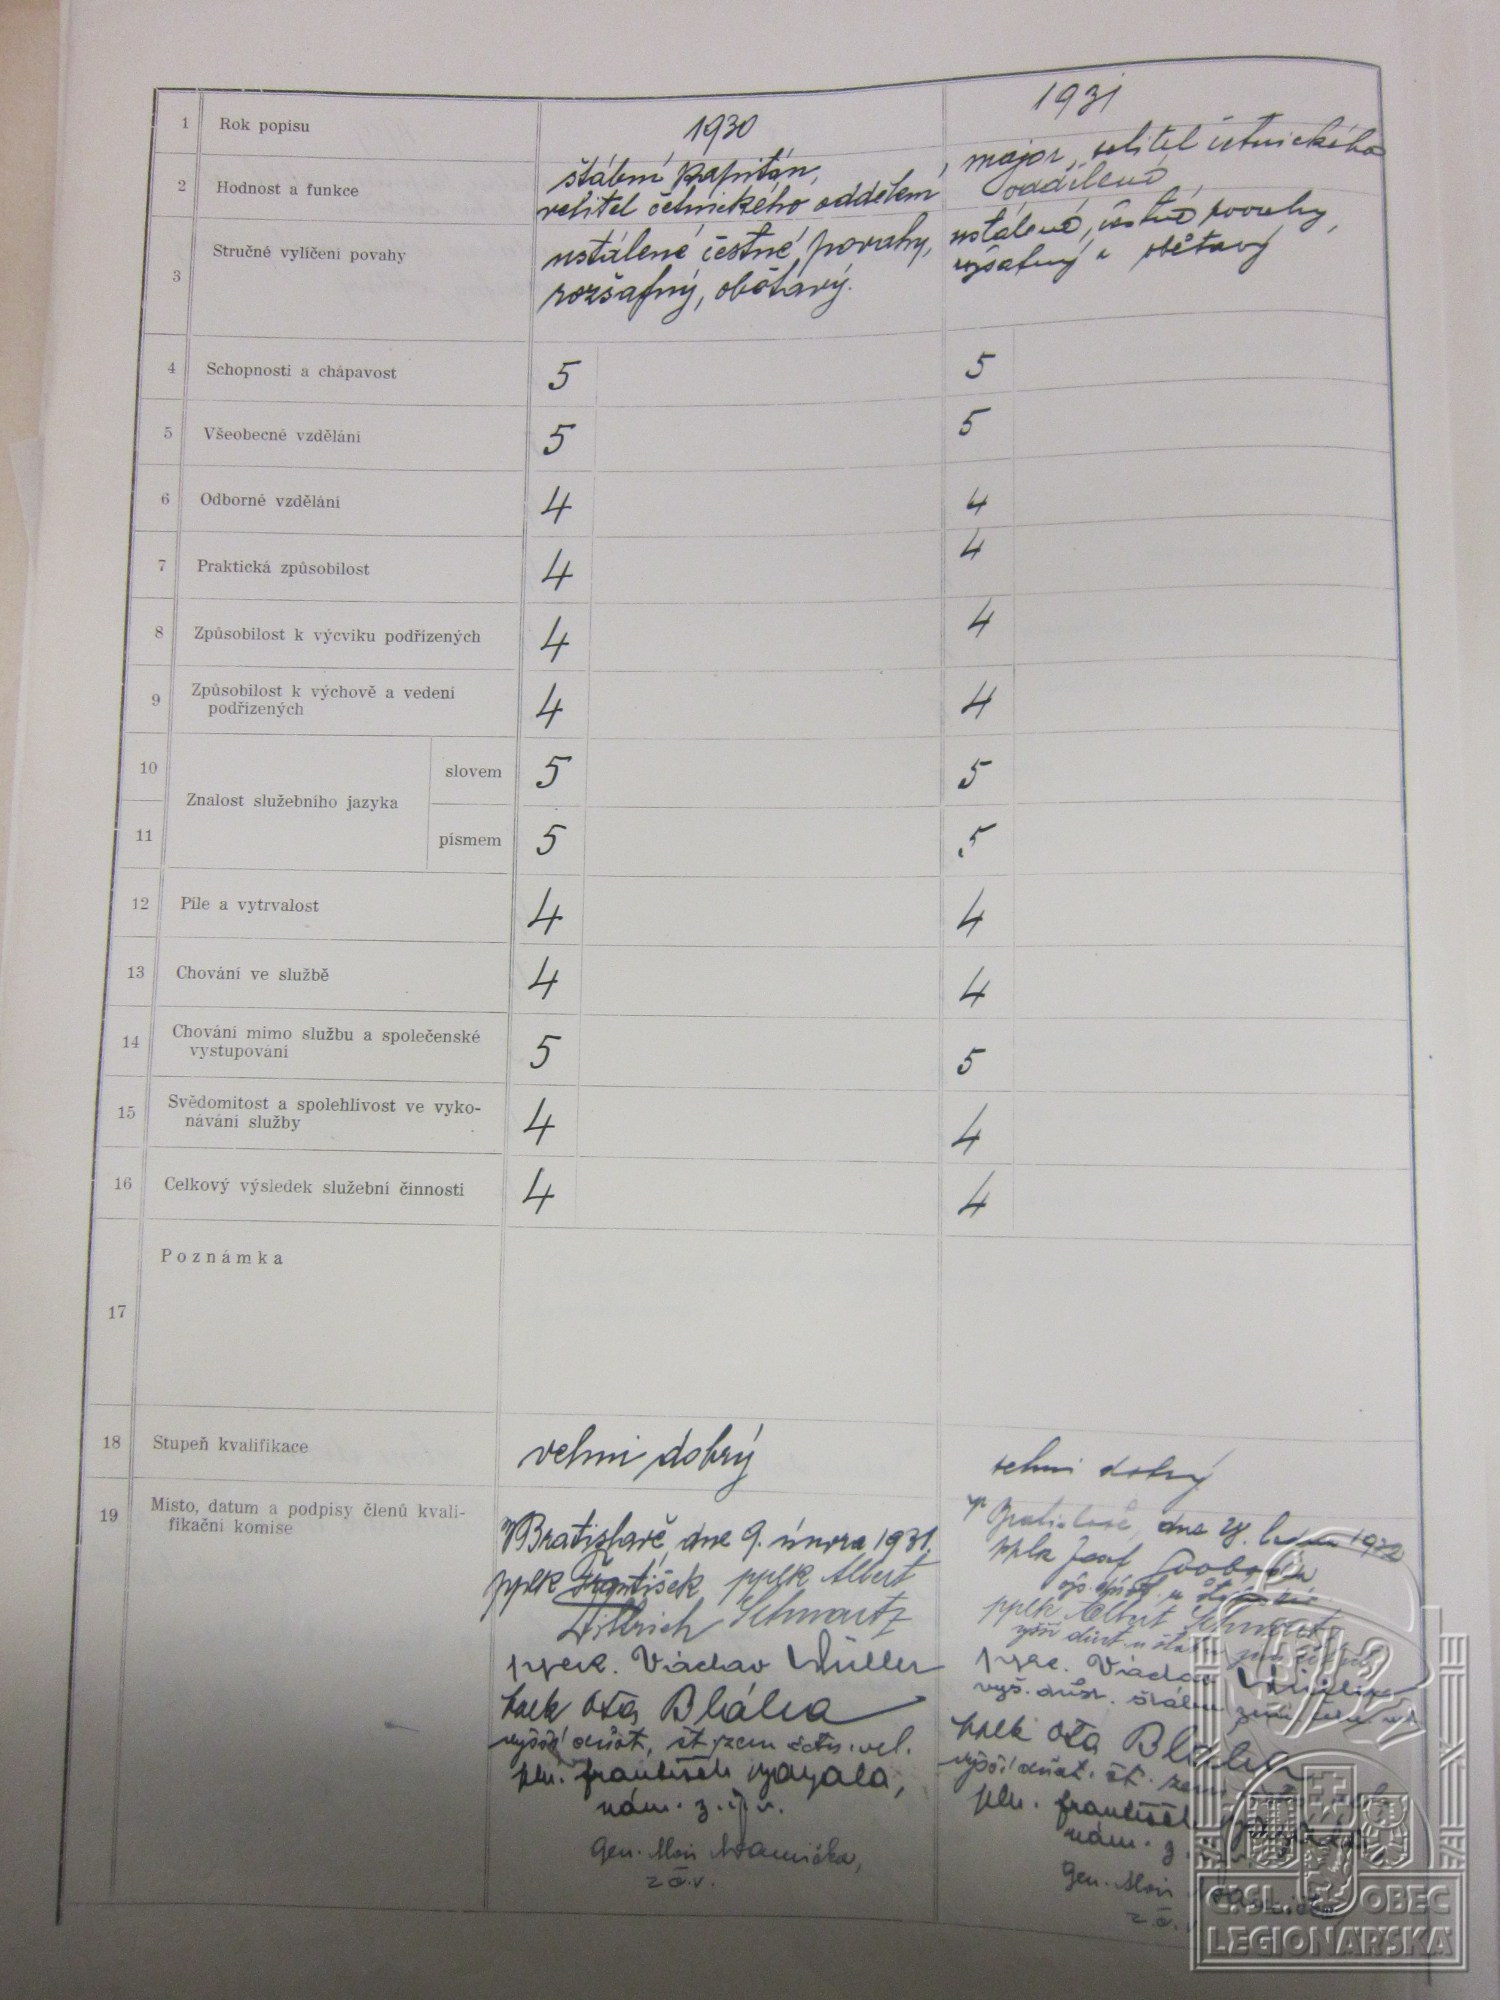 1 Rok popisu 1930 1931
2 Hodnost a funkce štábní kapitán, major, velitel četnického
velitel četnického oddělení oddělení
3 Stručné vylíčení povahy ustálené čestné povahy, ustálené, čestné povahy,
rozšafný, obětavý. obětavý
4 Schopnosti a chápavost 5 5
5 Všeobecné vzdělání 5 5
6 Odborné vzdělání 4 4
7 Praktická způsobilost 4 4
8 Způsobilost k výcviku podřízených 4 4
9 Způsobilost k výchově a vedení
podřízených 4 4
10 Znalost služebního jazyka slovem 5 5
11 písmem 5 5
12 Píle a vytrvalost 4 4
13 Chování ve službě 4 4
14 Chování mimo službu a společenské
vystupování 5 5
15 Svědomitost a spolehlivost ve vyko-
návání služby 4 4
16 Celkový výsledek služební činnosti 4 4
17 Poznámka
18 Stupeň kvalifikace velmi dobrý velmi dobrý
19 Místo, datum a podpisy členů kvali-
fikační komise
V Bratislavě, dne 9. února 1931.
pplk František pplk Albert
Dittrich Schwartz
Václav Müller
Ota Bláha
vyšší důst. št. zem. četn. vel.
František Vyzyala,
nám. z. p. v.
Gen. Alois
z. č. v.
V Bratislavě, dne 1932
pplk Josef Svoboda
pplk Albert Schwartz
Václav
vyš. důst.
Ota Bláha
vyšší důst. št. zem.
František
nám. z.
Gen. Alois
ČSL. OBEC
LEGIONÁŘSKÁ